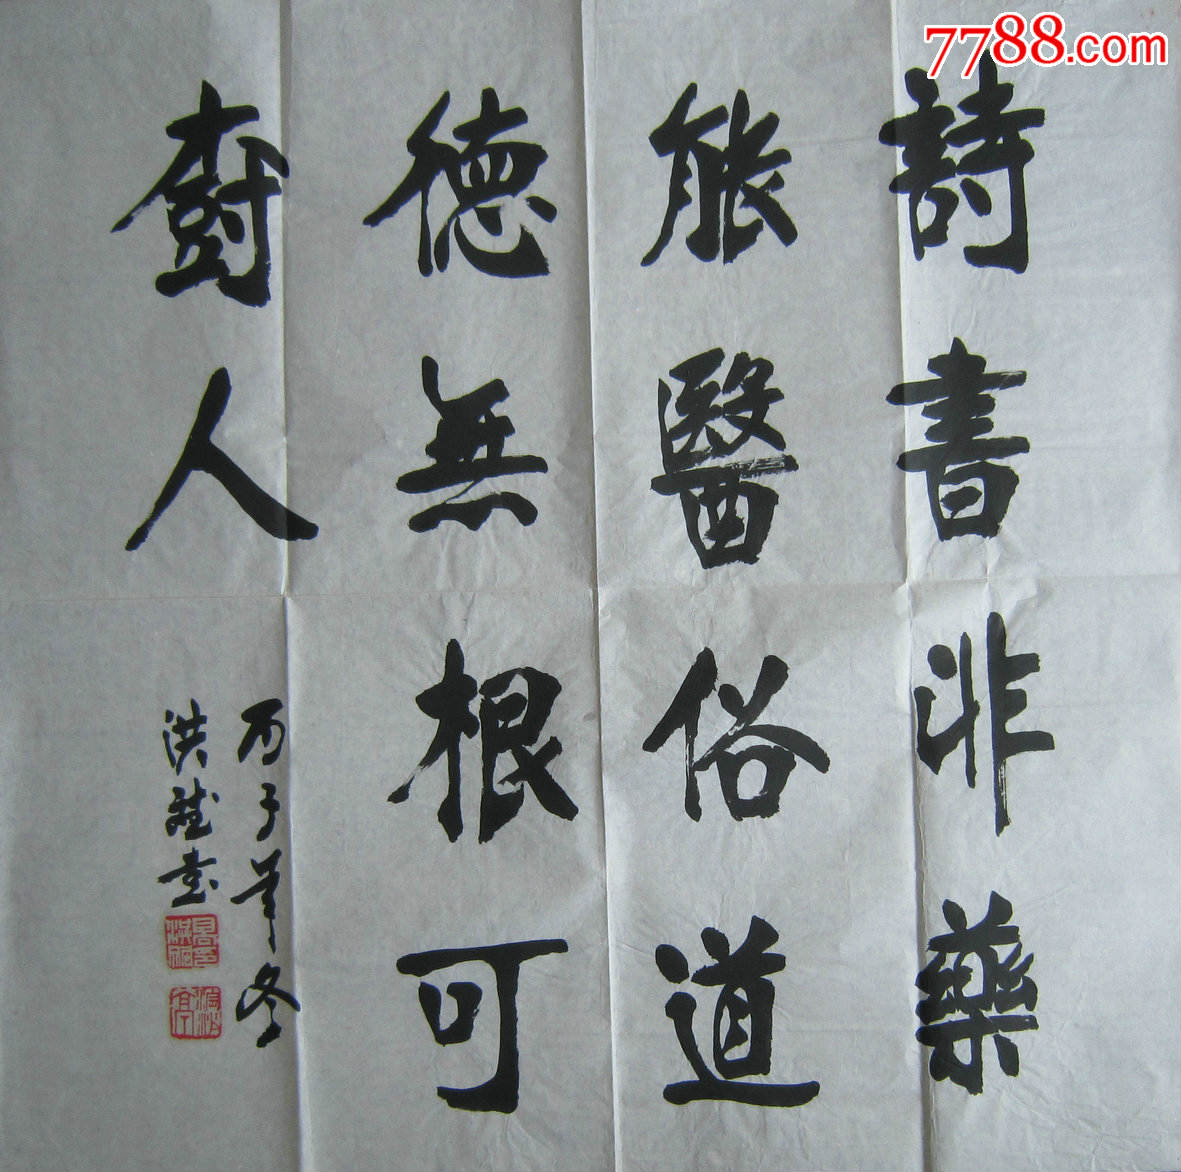 7788.com
詩書非藥
能醫俗道
德無根可
樹人
丙子年冬
洪書